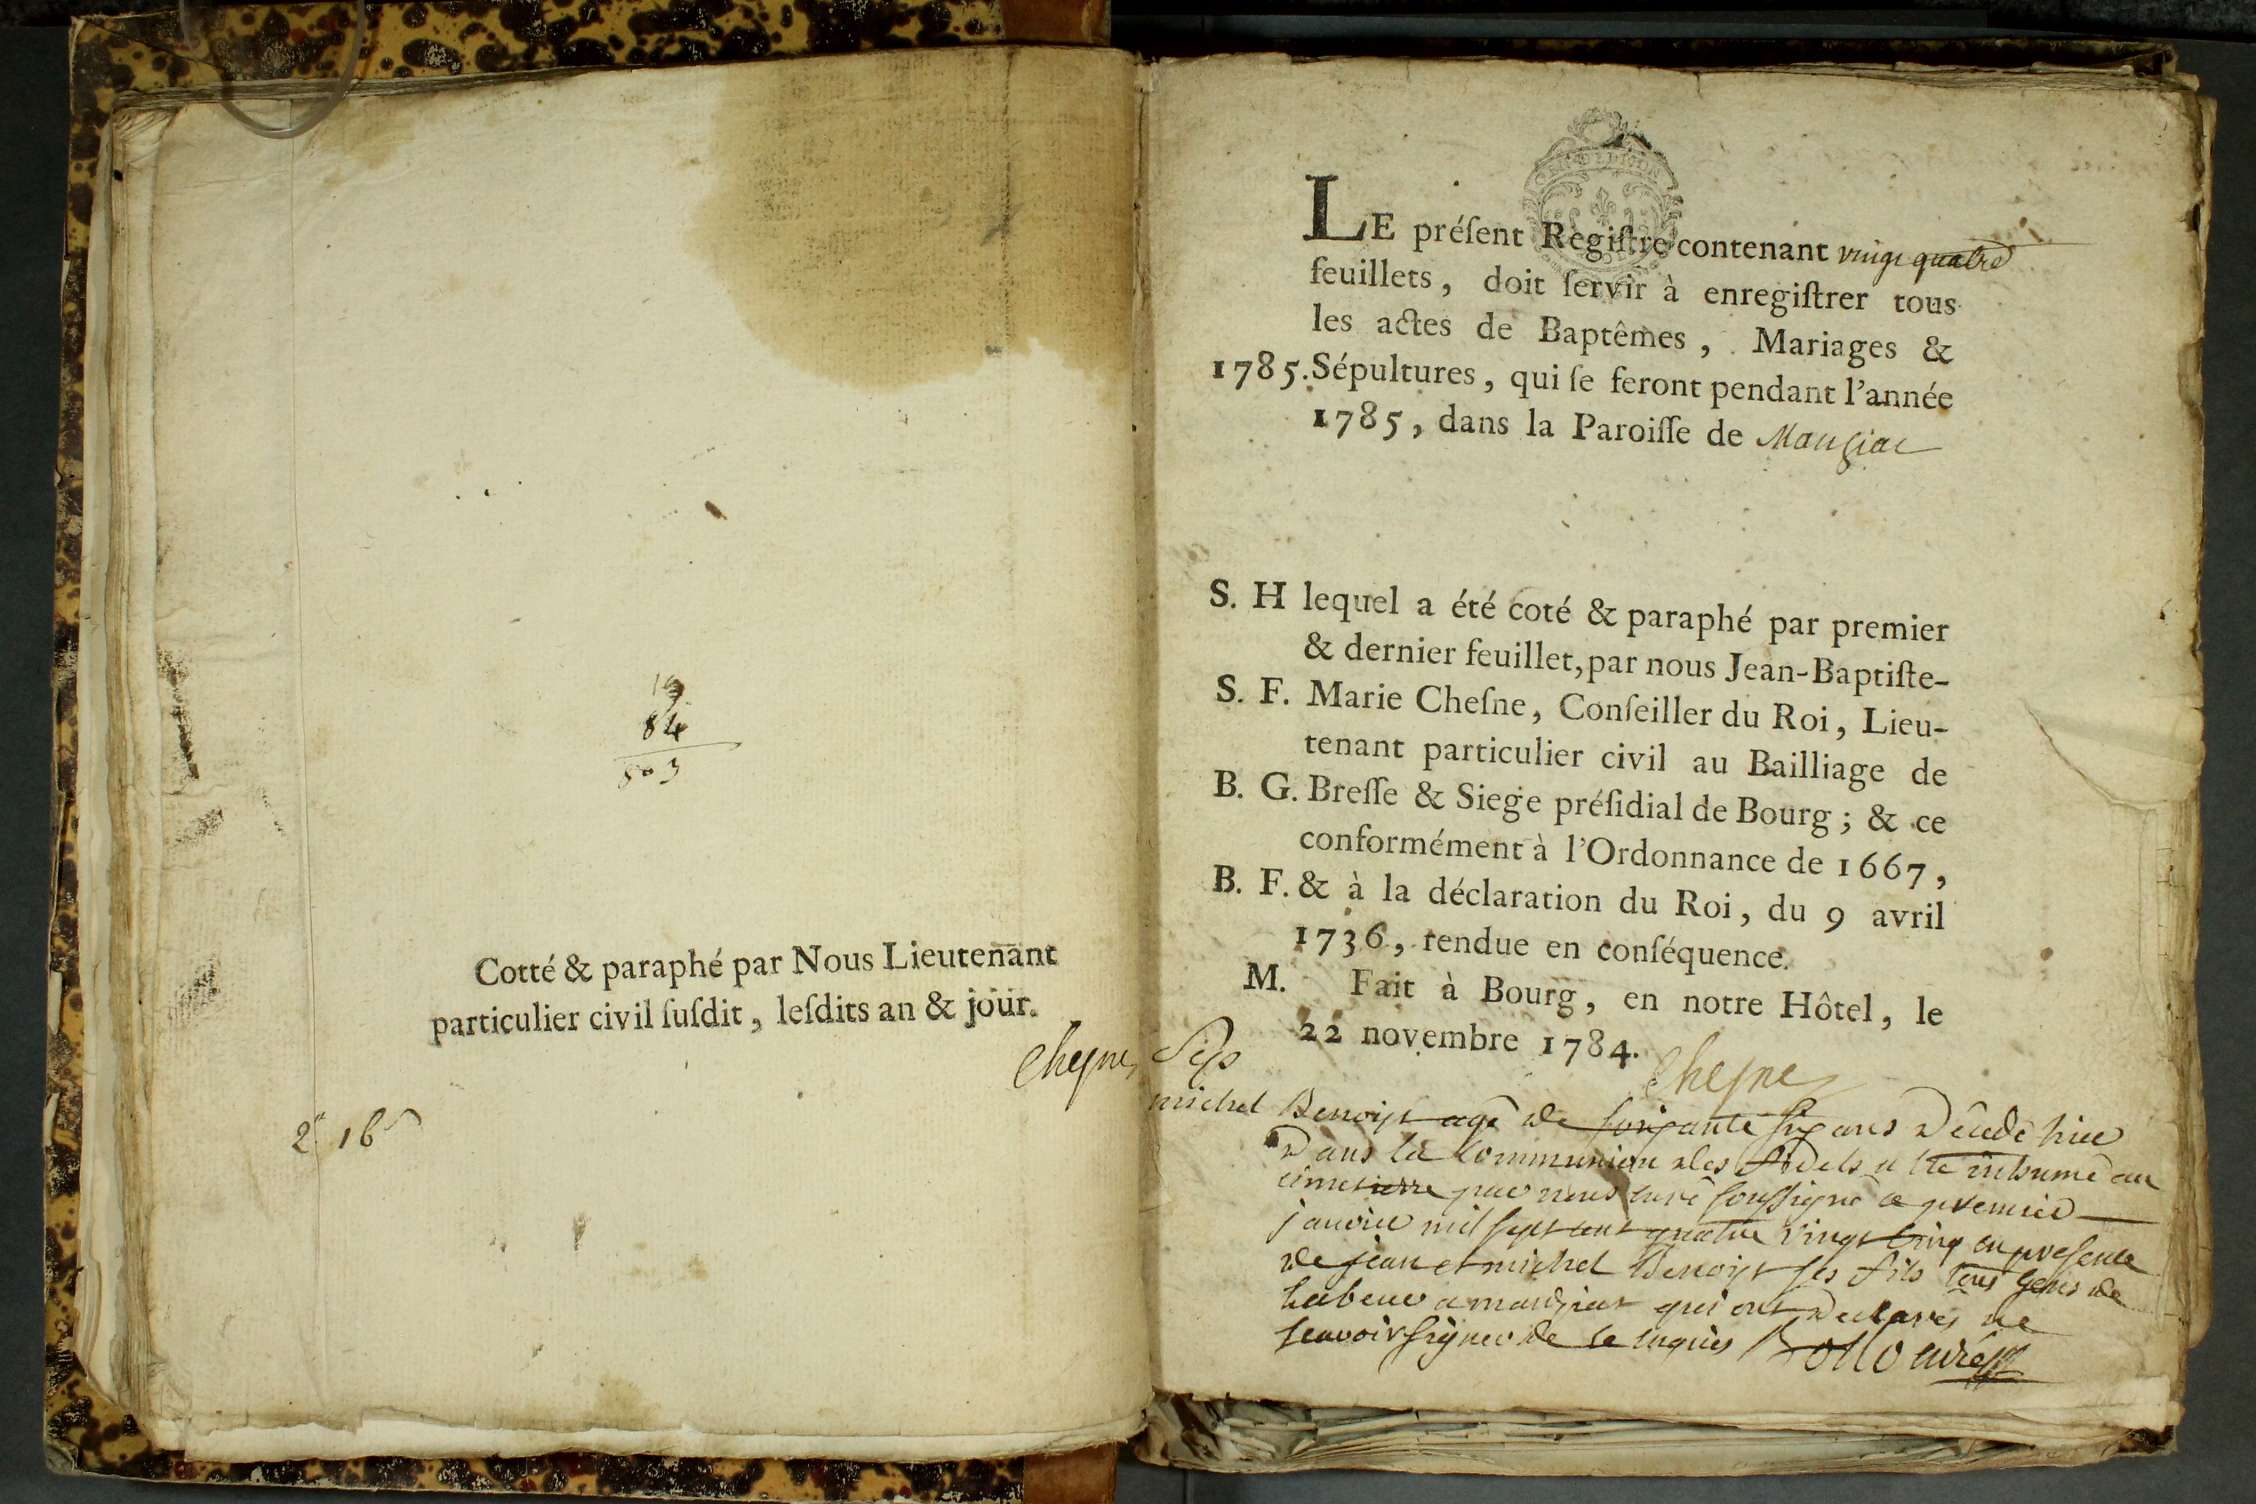 19
84
803
Cotté & paraphé par Nous Lieutenant
particulier civil ſuſdit, leſdits an & jour.
Cheſne
2 16
LE préſent Regiſtre contenant vingt quatre
feuillets, doit ſervir à enregiſtrer tous
les actes de Baptêmes, Mariages &
1785. Sépultures, qui ſe feront pendant l'année
1785, dans la Paroiſſe de Mauziat
S. H lequel a été coté & paraphé par premier
& dernier feuillet, par nous Jean-Baptiſte-
S. F. Marie Cheſne, Conſeiller du Roi, Lieu-
tenant particulier civil au Bailliage de
B. G. Breſſe & Siege préſidial de Bourg; & ce
conformément à l'Ordonnance de 1667,
B. F. & à la déclaration du Roi, du 9 avril
1736, rendue en conſéquence.
M. Fait à Bourg, en notre Hôtel, le
22 novembre 1784.
Cheſne
Sep
michel Benoist agé de soixante six ans décédé hier
dans la Communion des fidels a eté inhumé au
cimetierre par nous curé soussigné ce premier
janvier mil sept cent quatre vingt cinq en presence
de jean et michel Benoist ses fils tous gens de
labeur a mauziat qui ont declarés ne
scavoir signer de ce enquis
curé